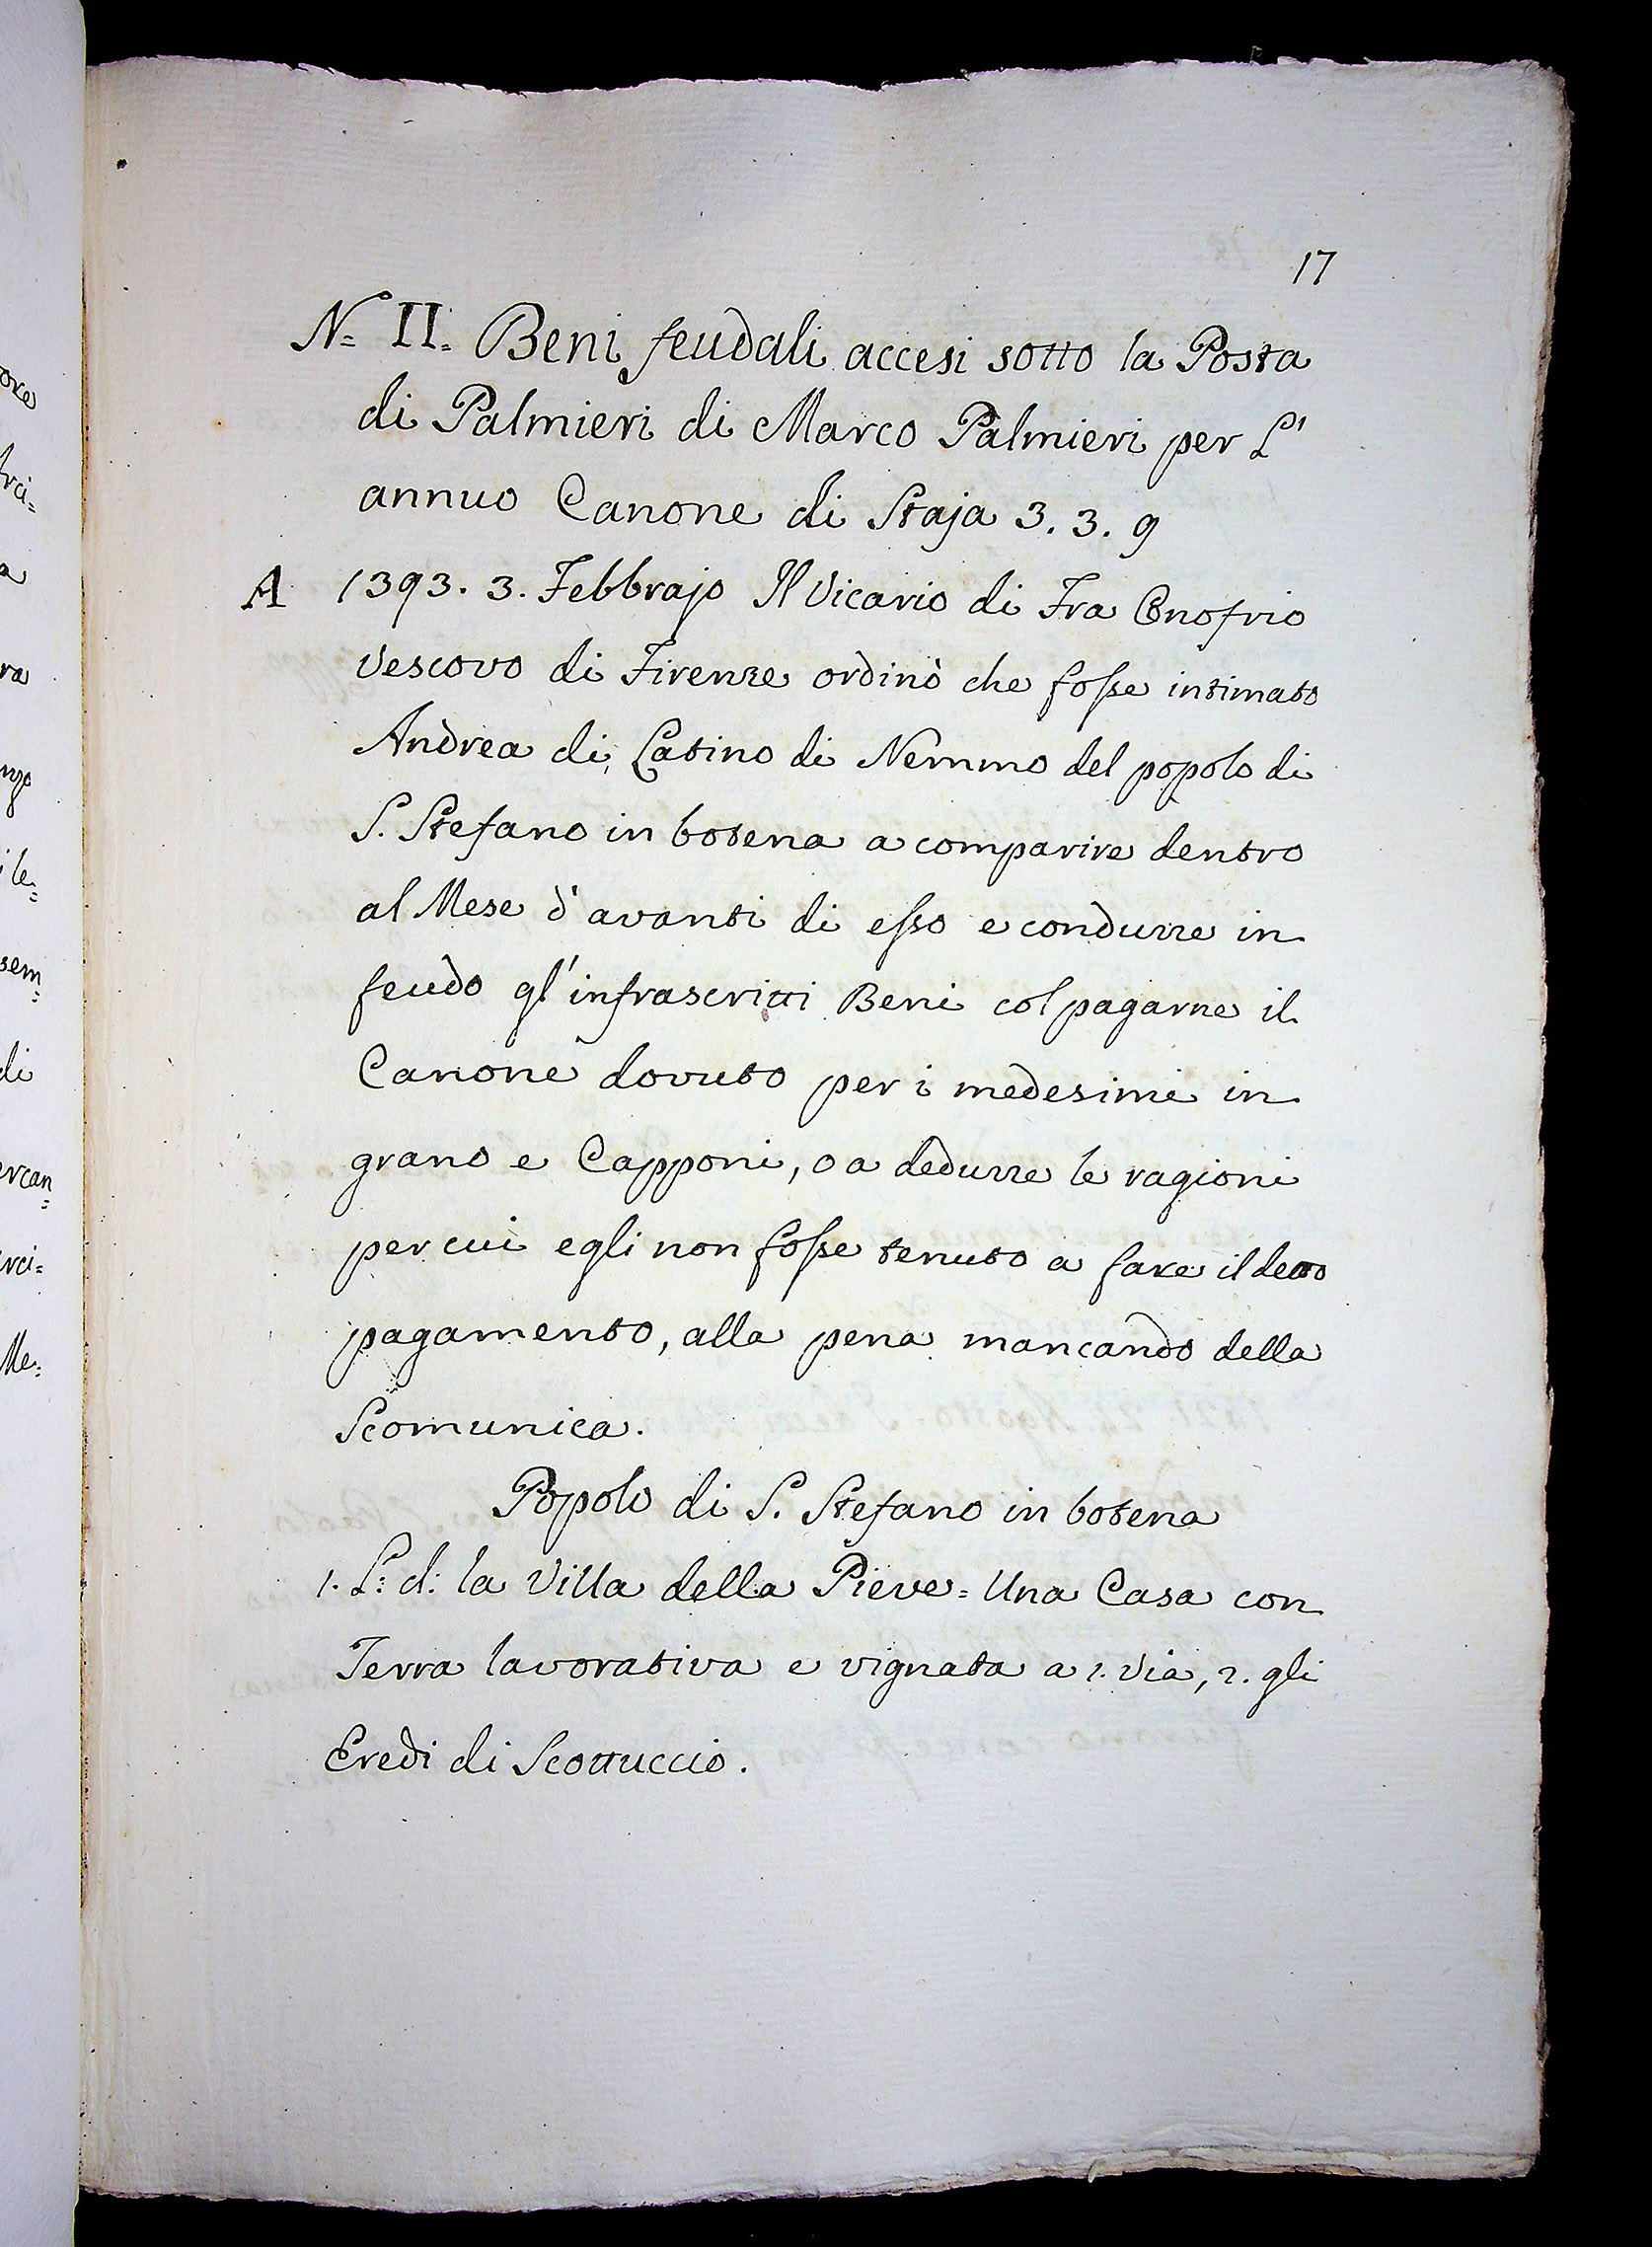 17
N= II. Beni feudali accesi sotto la Posta
di Palmieri di Marco Palmieri per L'
annuo Canone di Staja 3. 3. 9
A 1393. 3. Febbrajo Il Vicario di Fra Onofrio
Vescovo di Firenze ordinò che fosse intimato
Andrea di Latino di Nemmo del popolo di
S. Stefano in botena a comparire dentro
al Mese d'avanti di esso e condurre in
feudo gl'infrascritti Beni col pagarne il
Canone dovuto per i medesimi in
grano e Capponi, o a dedurre le ragioni
per cui egli non fosse tenuto a fare il detto
pagamento, alla pena mancando della
Scomunica.
Popolo di S. Stefano in botena
1. L: d: la Villa della Pieve = Una Casa con
Terra lavorativa e vignata a 1. Via, 2. gli
Eredi di Scottuccio.